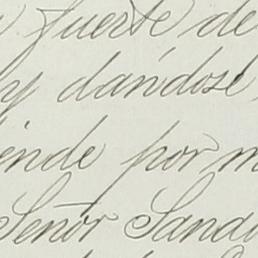 fuerte de
y dandose
ende por m
Señor Sand